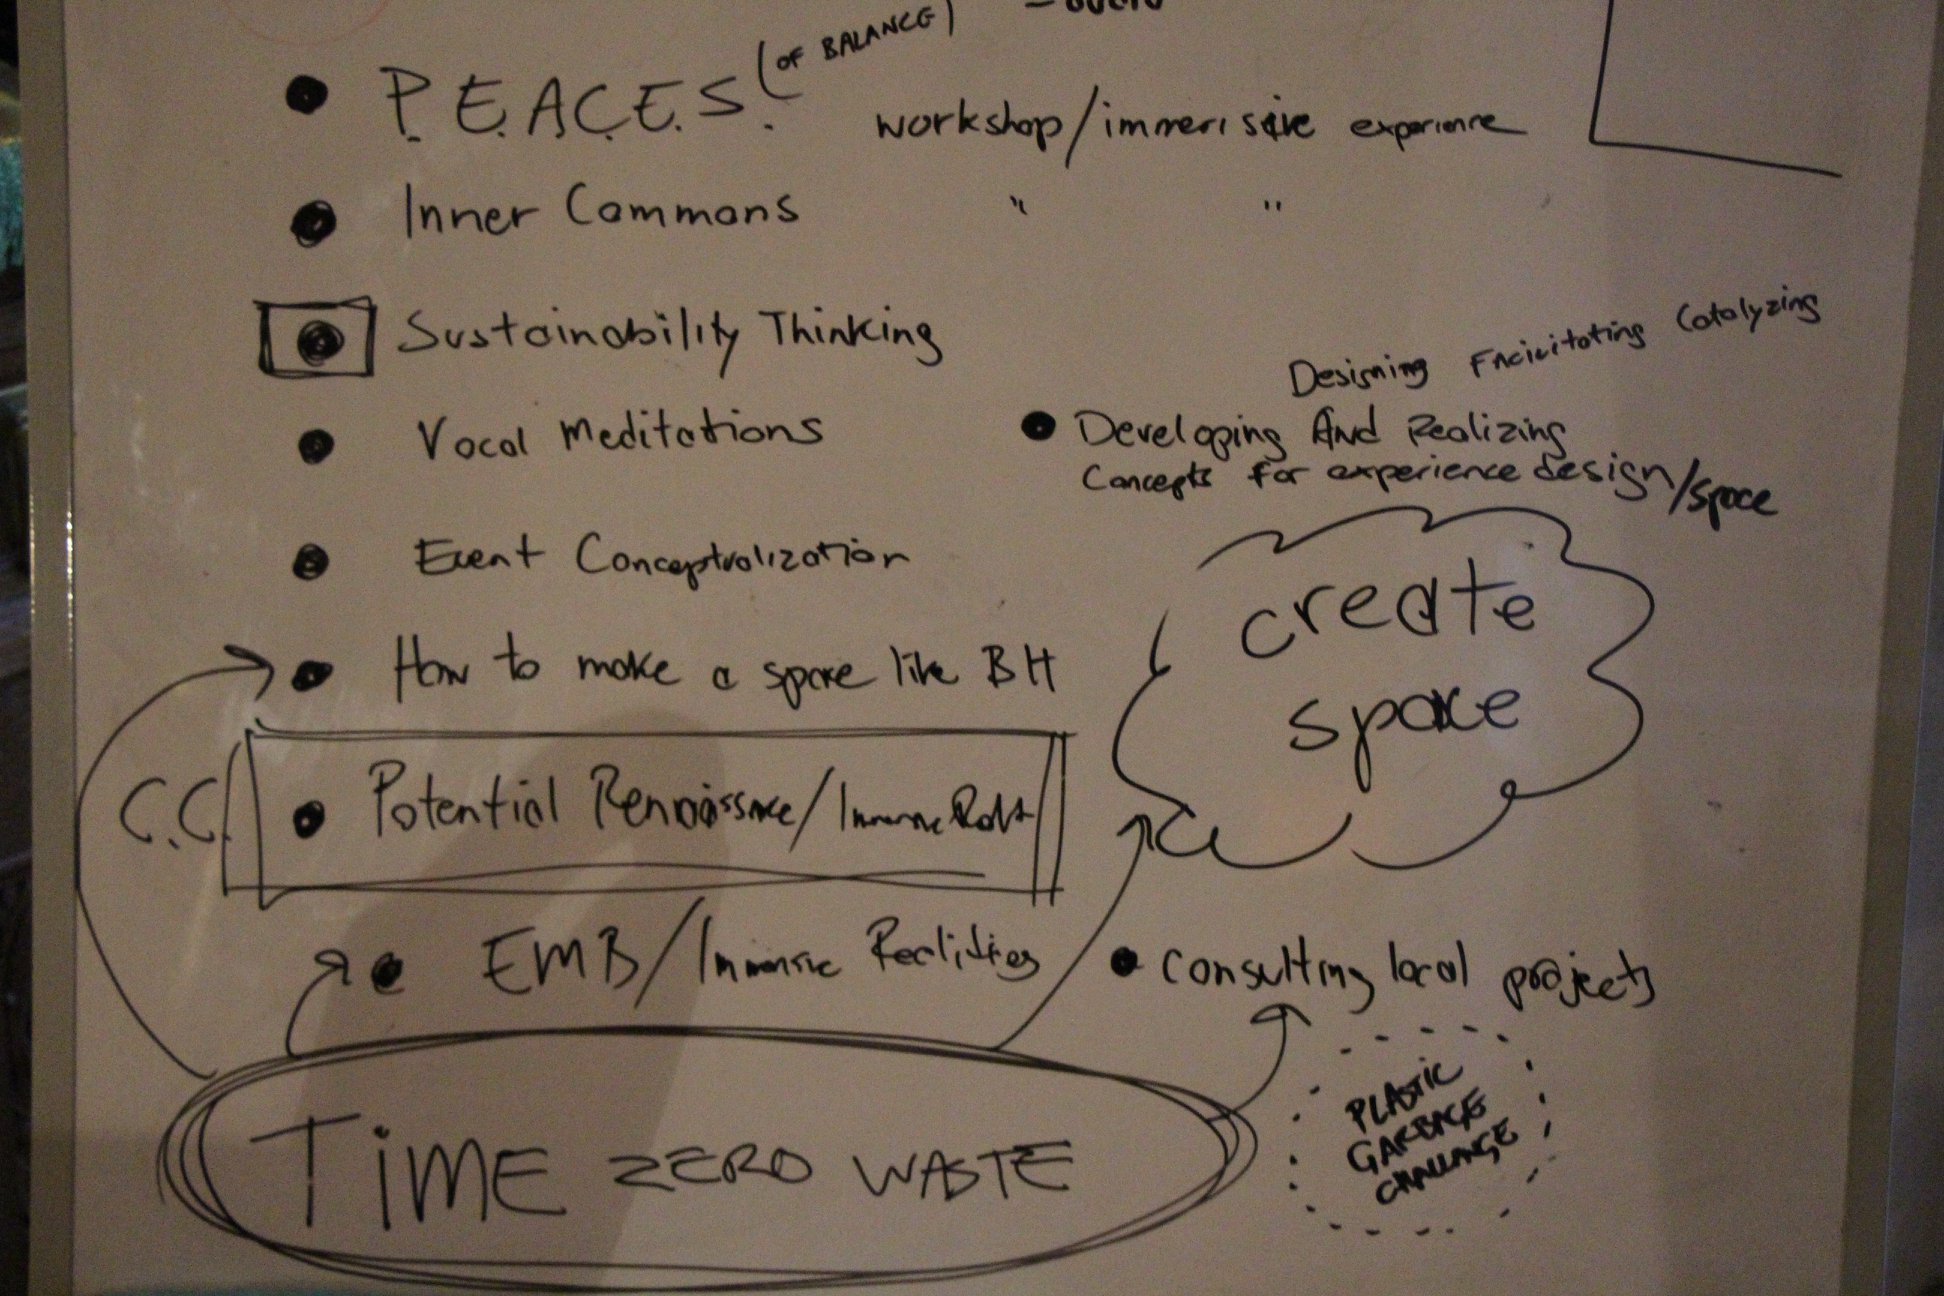 (OF BALANCE)
P.E.A.C.E.S.
workshop/immersive experience
Inner Commons " "
Sustainability Thinking
Vocal Meditations
Event Conceptualization
How to make a space like BH
C.C.
Potential Renaissance/
EMB/Immersive Realities
TIME ZERO WASTE
Designing Facilitating Catalyzing
Developing And Realizing
Concepts for experience design/space
create
space
consulting local projects
PLASTIC
GARBAGE
CHALLANGE